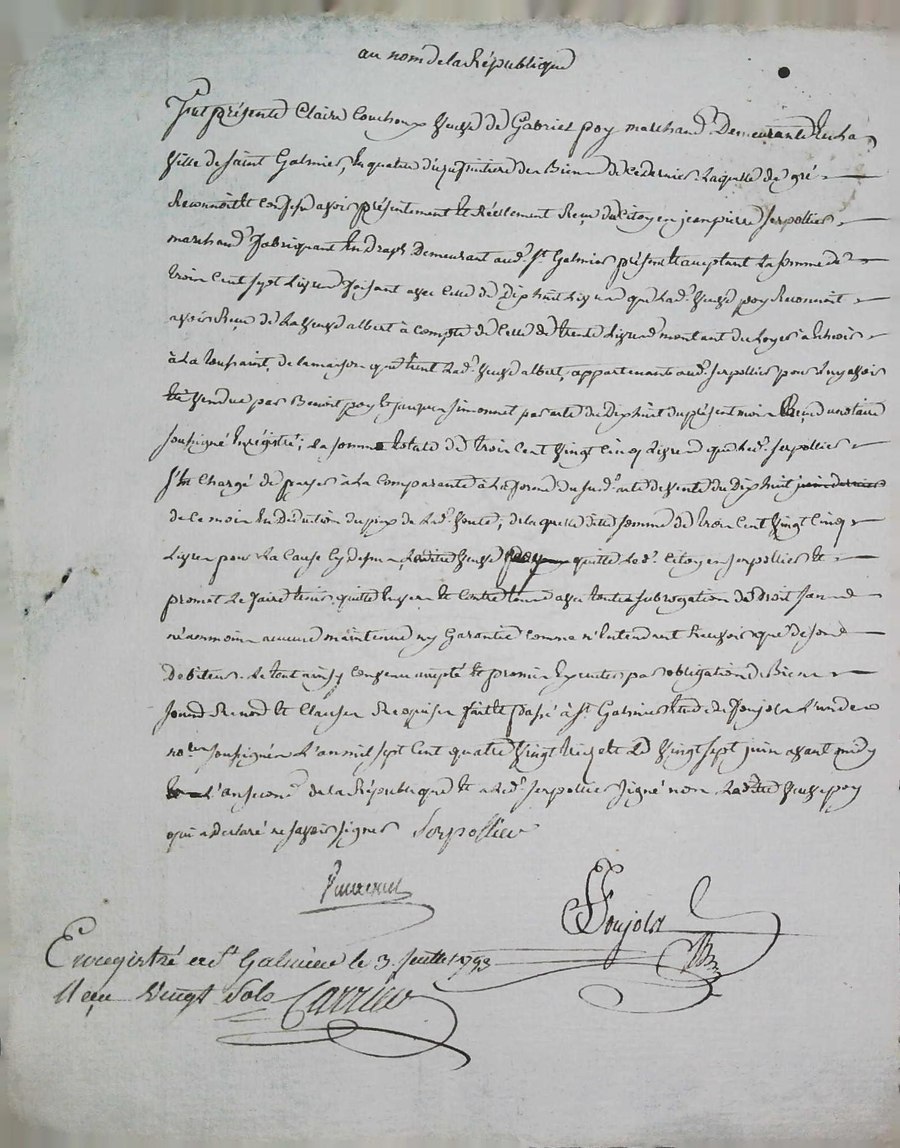 au nom de la République
Fut présente Claire Couchoux veuve de Gabriel poy marchand Demeurante en la
ville de Saint Galmier, en qualité d'uzufruitiere des Biens de ce dernier Laquelle de gré
Reconnoit et confesse avoir présentement et réelement Reçu du Citoyen jean pierre Serpollier
marchand fabriquant en draps Demeurant aud. St Galmier présent et acceptant La somme de
trois cent sept Livres faisant avec Celle de Dixhuit Livres que Lad. veuve poy Reconnoit
avoir Reçu de La veuve albert à compte de Celle de trente Livres montant du Loyer à Echoir
à La toussaint, de la maison que tient Lad. veuve albert, appartenante aud. Serpollier pour Luy avoir
été vendue par Benoit poy et jacques simonnet par acte du Dixhuit du présent mois Reçu du notaire
soussigné Enrégistré; La somme totale de trois Cent vingt Cinq Livres que Led. Serpollier
s'est Chargé de payer à La Comparante à La forme du sud. acte de vente du Dixhuit juin dernier
de Ce mois En Déduction du prix de Lad. vente, de laquelle dite somme de trois Cent vingt Cinq
Livres pour La Cause Cy dessus Ladite veuve poy quitte Led. Citoyen Serpollier et
promet Le faire tenir quitte Envers et Contre tous avec toute subrogation de Droit sans
néanmoins aucune maintenue ny Garantie comme n'Entendant Recevoir que de son
débiteur. Le tout ainsy Convenu accepté et promis Executer par obligation de Biens
soumissions Renond. et Clauses Requises fait et passé à St. Galmier Etude de Foujols L'un des
nores soussignés L'an mil sept Cent quatre vingt treize et Le vingt sept juin avant midy
L'an second de la République et a Led. Serpollier signé non Ladite veuve poy
qui a déclaré ne savoir signer Serpollier
Foujols
Enregistré a St Galmier le 3. Juillet 1793
Reçu vingt Sols Carrier